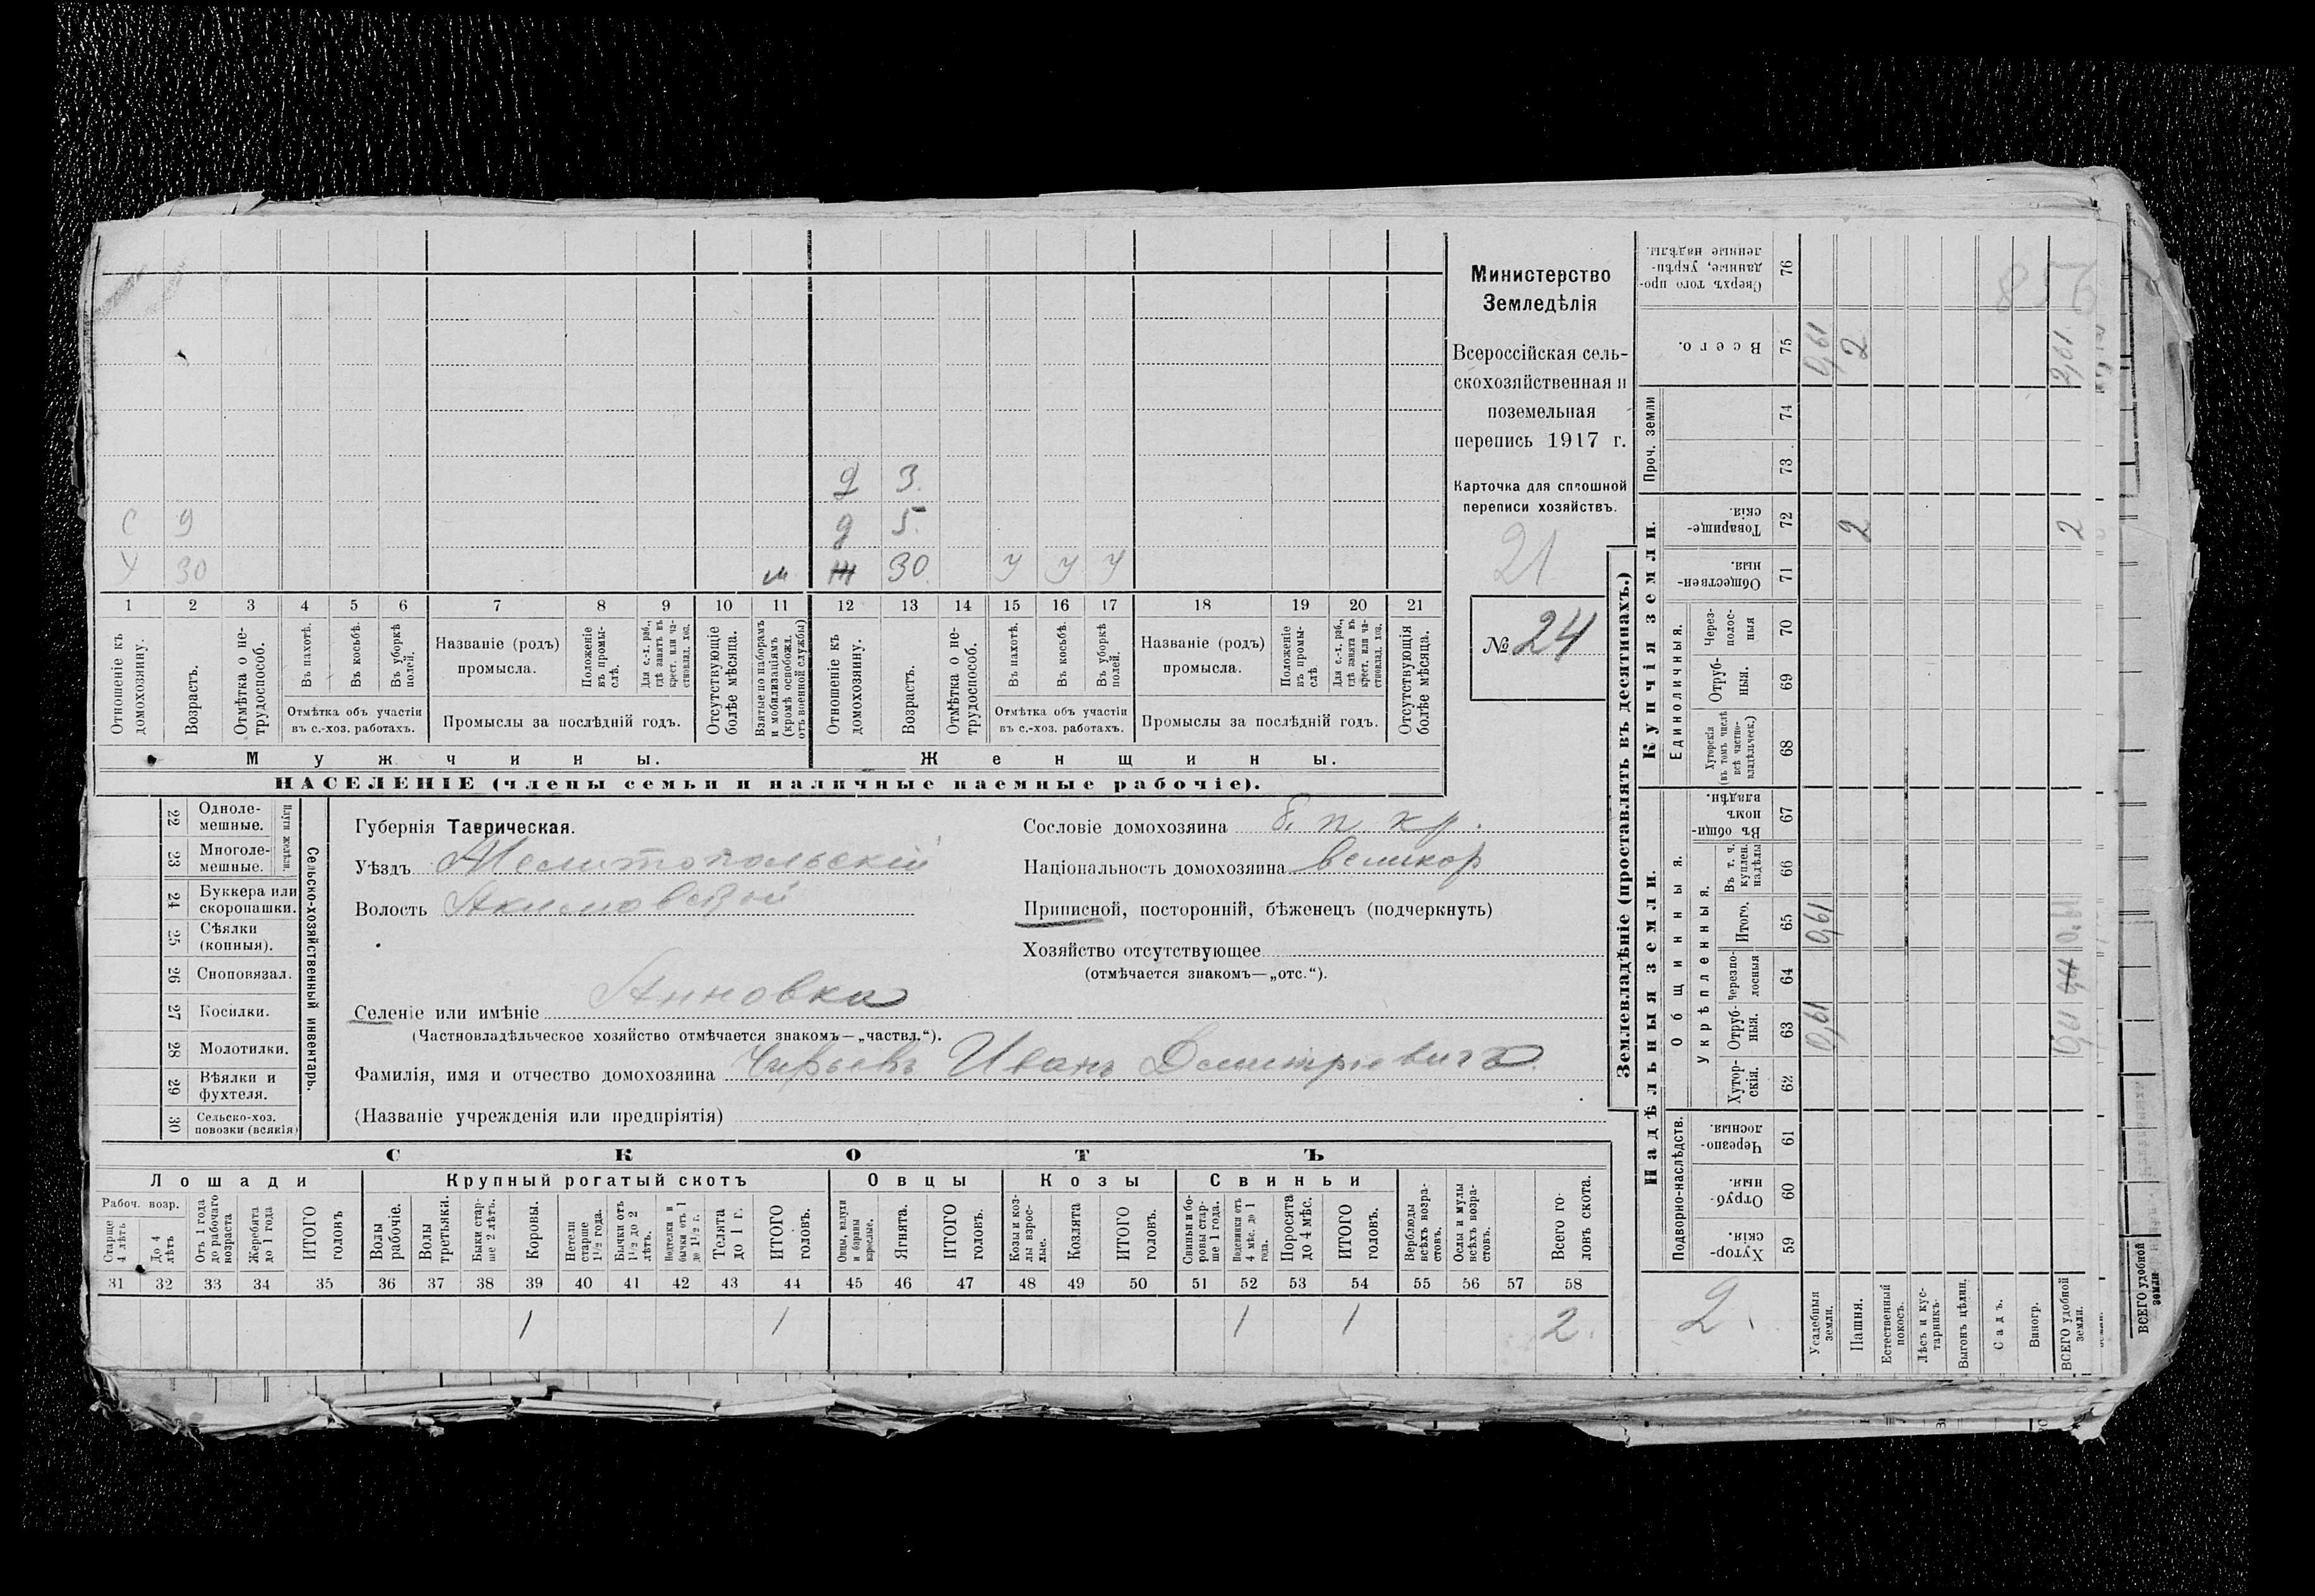 Министерство
Земледѣлія
Всероссійская сель-
скохозяйственная и
поземельная
перепись 1917 г.
Карточка для сплошной
переписи хозяйствъ.
21
№ 24
д 3.
С 9 д 5.
У 30 м Ж 30. У У У
1 2 3 4 5 6 7 8 9 10 11 12 13 14 15 16 17 18 19 20 21
Отношеніе къ домохозяину.
Возрастъ.
Отмѣтка о не-трудоспособ.
Въ пахотѣ.
Въ косьбѣ.
Въ уборкѣ полей.
Отмѣтка объ участіи
въ с.-хоз. работахъ.
Названіе (родъ)
промысла.
Положеніе въ промы-слѣ.
Для с.-х. раб., гдѣ занятъ въ крест. или ча-стновлад. хоз.
Промыслы за послѣдній годъ.
Отсутствующіе болѣе мѣсяца.
Взятые по наборамъ и мобилизаціямъ (кромѣ освобожд. отъ военной службы)
Отношеніе къ домохозяину.
Возрастъ.
Отмѣтка о не-трудоспособ.
Въ пахотѣ.
Въ косьбѣ.
Въ уборкѣ полей.
Отмѣтка объ участіи
въ с.-хоз. работахъ.
Названіе (родъ)
промысла.
Положеніе въ промы-слѣ.
Для с.-х. раб., гдѣ занята въ крест. или ча-стновлад. хоз.
Промыслы за послѣдній годъ.
Отсутствующія болѣе мѣсяца.
Мужчины. Женщины.
НАСЕЛЕНІЕ (члены семьи и наличные наемные рабочіе).
22 Одноле-мешные.
23 Многоле-мешные.
24 Буккера или скоропашки.
25 Сѣялки (конныя).
26 Сноповязал.
27 Косилки.
28 Молотилки.
29 Вѣялки и фухтеля.
30 Сельско-хоз. повозки (всякія)
Сельско-хозяйственный инвентарь.
Губернія Таврическая.
Уѣздъ Мелитопольскій
Волость Акимовской
Сословіе домохозяина б. п. кр.
Національность домохозяина великор
Приписной, посторонній, бѣженецъ (подчеркнуть)
Хозяйство отсутствующее
(отмѣчается знакомъ—„отс.“).
Селеніе или имѣніе Анновка
(Частновладѣльческое хозяйство отмѣчается знакомъ—„частвл.“).
Фамилія, имя и отчество домохозяина Иванъ Дмитріевичъ
(Названіе учрежденія или предпріятія)
СКОТЪ
Лошади Крупный рогатый скотъ Овцы Козы Свиньи
Рабоч. возр.
Старше 4 лѣтъ
До 4 лѣтъ
Отъ 1 года до рабочаго возраста
Жеребята до 1 года
ИТОГО головъ
Волы рабочіе.
Волы третьяки.
Быки стар-ше 2 лѣтъ.
Коровы.
Нетели старше 1½ года.
Бычки отъ 1½ до 2 лѣтъ.
Подтелки и бычки отъ 1 до 1½ г.
Телята до 1 г.
ИТОГО головъ.
Овцы, валухи и бараны взрослые.
Ягнята.
ИТОГО головъ.
Козы и коз-лы взрос-лые.
Козлята
ИТОГО головъ.
Свиньи и бо-ровы стар-ше 1 года.
Подсвинки отъ 4 мѣс. до 1 года.
Поросята до 4 мѣс.
ИТОГО головъ.
Верблюды всѣхъ возра-стовъ.
Ослы и мулы всѣхъ возра-стовъ.
Всего го-ловъ скота.
31 32 33 34 35 36 37 38 39 40 41 42 43 44 45 46 47 48 49 50 51 52 53 54 55 56 57 58
1 1 1 1 2.
Землевладѣніе (проставлять въ десятинахъ.)
Надѣльныя земли. Купчія земли. Проч. земли
Подворно-наслѣдств.
Общинныя.
Укрѣпленныя.
Единоличныя.
Хутор-скія. 59
Отруб-ныя. 60
Черезпо-лосныя. 61
Хутор-скія. 62
Отруб-ныя. 63
Черезпо-лосныя 64
Итого. 65
Въ т. ч. куплен. надѣлы 66
Въ общин-номъ владѣн. 67
Хуторскія (въ томъ числѣ всѣ частно-владѣльческ.) 68
Отруб-ныя. 69
Через-полос-ныя 70
Обществен-ныя. 71
Товарище-скія. 72
73
74
Всего. 75
Сверхъ того про-данные, укрѣп-ленные надѣлы. 76
2.
Усадебныя земли. 0,61 0,61 0,61
Пашня. 2 2
Естественный покосъ.
Лѣсъ и кус-тарникъ
Выгонъ цѣлин.
Садъ.
Виногр.
ВСЕГО удобной земли. 2
ВСЕГО удобной земли